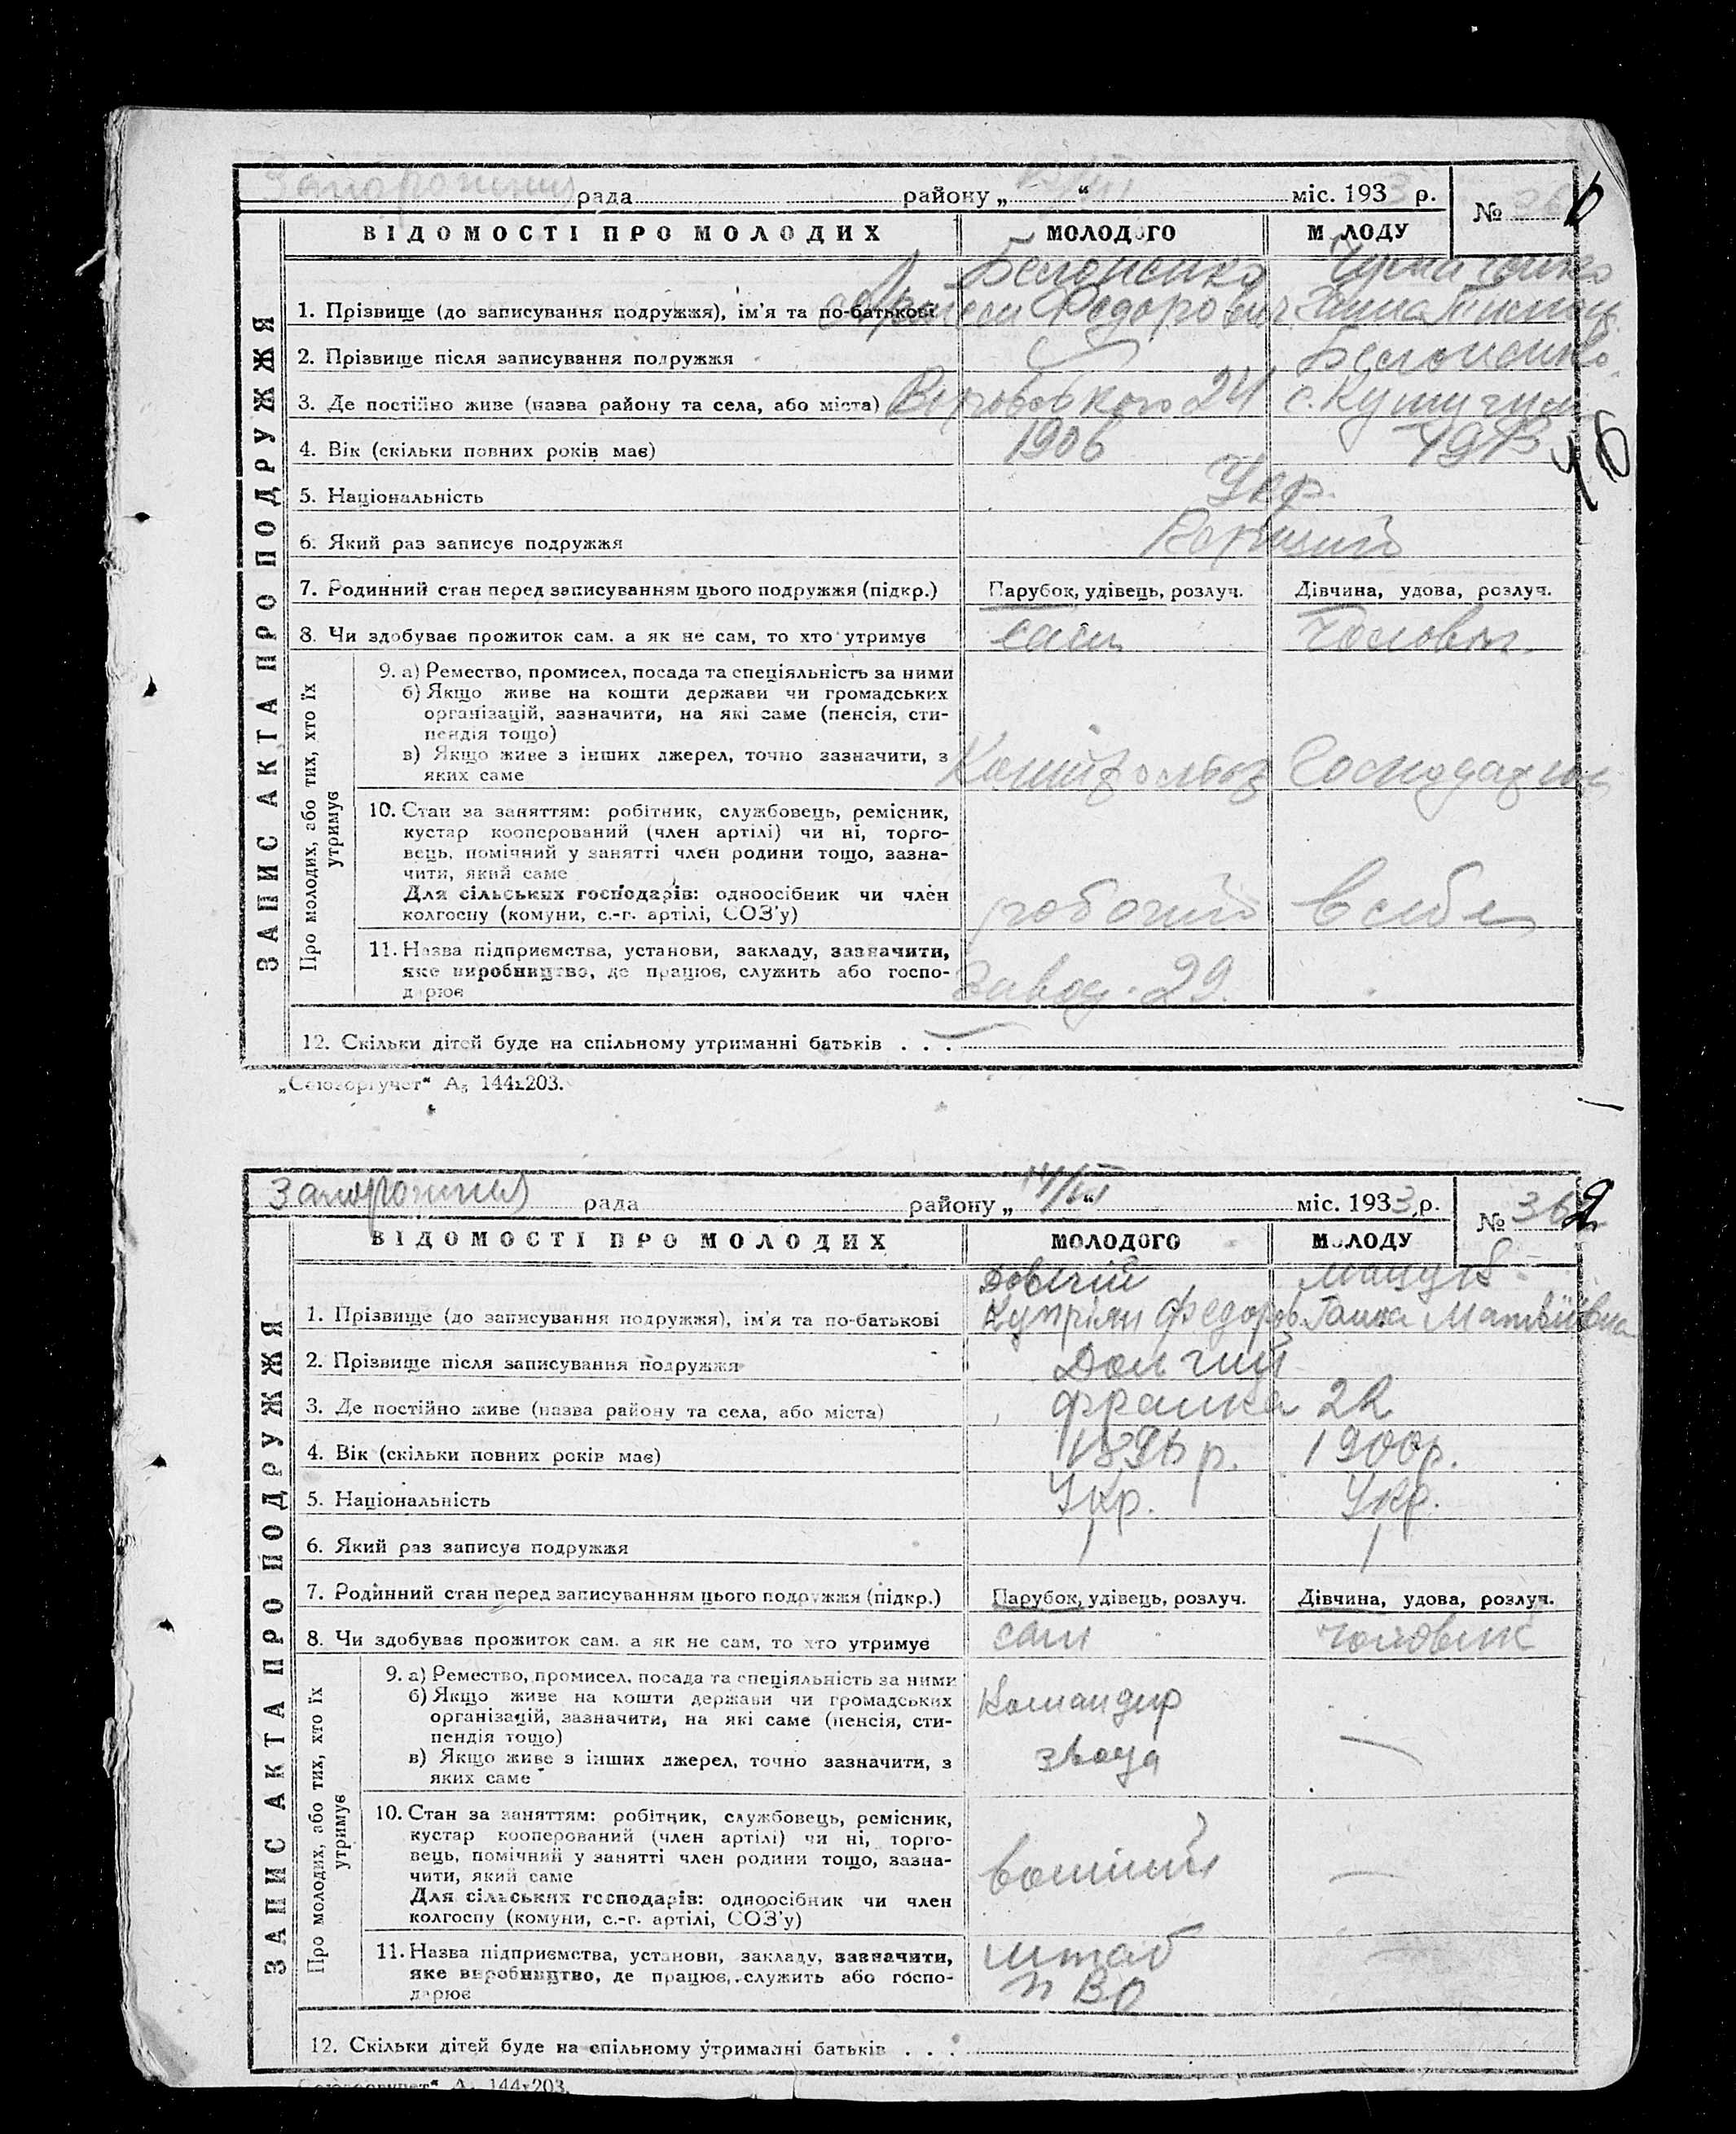 Запоріжжя рада району „ “ міс. 1933 р.
№
ВІДОМОСТІ ПРО МОЛОДИХ МОЛОДОГО МОЛОДУ
ЗАПИС АКТА ПРО ПОДРУЖЖЯ
1. Прізвище (до записування подружжя), ім'я та по-батькові Федорович Ганна
2. Прізвище після записування подружжя
3. Де постійно живе (назва району та села, або міста) 24 с. Кушугум
4. Вік (скільки повних років має) 1906 1913
5. Національність Укр.
6. Який раз записує подружжя Первый
7. Родинний стан перед записуванням цього подружжя (підкр.) Парубок, удівець, розлуч. Дівчина, удова, розлуч.
8. Чи здобуває прожиток сам. а як не сам, то хто утримує сам
Про молодих, або тих, хто їх утримує
9. а) Ремество, промисел, посада та спеціяльність за ними
б) Якщо живе на кошти держави чи громадських
організацій, зазначити, на які саме (пенсія, сти-
пендія тощо)
в) Якщо живе з інших джерел, точно зазначити, з
яких саме
10. Стан за заняттям: робітник, службовець, ремісник,
кустар кооперований (член артілі) чи ні, торго-
вець, помічний у занятті член родини тощо, зазна-
чити, який саме
Для сільських господарів: одноосібник чи член
колгоспу (комуни, с.-г. артілі, СОЗ'у) робочий в себе
11. Назва підприємства, установи, закладу, зазначити,
яке виробництво, де працює, служить або госпо-
дарює завод. 29.
12. Скільки дітей буде на спільному утриманні батьків . . .
„Союзоргучет“ А₅ 144х203.
Запоріжжя рада району „14/III“ міс. 1933 р.
№ 362
ВІДОМОСТІ ПРО МОЛОДИХ МОЛОДОГО МОЛОДУ
ЗАПИС АКТА ПРО ПОДРУЖЖЯ
Довгий Мацук
1. Прізвище (до записування подружжя), ім'я та по-батькові Купріян Федоров. Ганна Матвіївна
2. Прізвище після записування подружжя Долгий
3. Де постійно живе (назва району та села, або міста) Франка 22
4. Вік (скільки повних років має) 1896 р. 1900 р.
5. Національність Укр. Укр.
6. Який раз записує подружжя 1 1
7. Родинний стан перед записуванням цього подружжя (підкр.) Парубок, удівець, розлуч. Дівчина, удова, розлуч.
8. Чи здобуває прожиток сам. а як не сам, то хто утримує сам чоловік
Про молодих, або тих, хто їх утримує
9. а) Ремество, промисел, посада та спеціяльність за ними
б) Якщо живе на кошти держави чи громадських
організацій, зазначити, на які саме (пенсія, сти-
пендія тощо)
в) Якщо живе з інших джерел, точно зазначити, з
яких саме
Командир
звода
10. Стан за заняттям: робітник, службовець, ремісник,
кустар кооперований (член артілі) чи ні, торго-
вець, помічний у занятті член родини тощо, зазна-
чити, який саме
Для сільських господарів: одноосібник чи член
колгоспу (комуни, с.-г. артілі, СОЗ'у)
11. Назва підприємства, установи, закладу, зазначити,
яке виробництво, де працює, служить або госпо-
дарює
штаб
ПВО
12. Скільки дітей буде на спільному утриманні батьків . . .
„Союзоргучет“ А₅ 144х203.